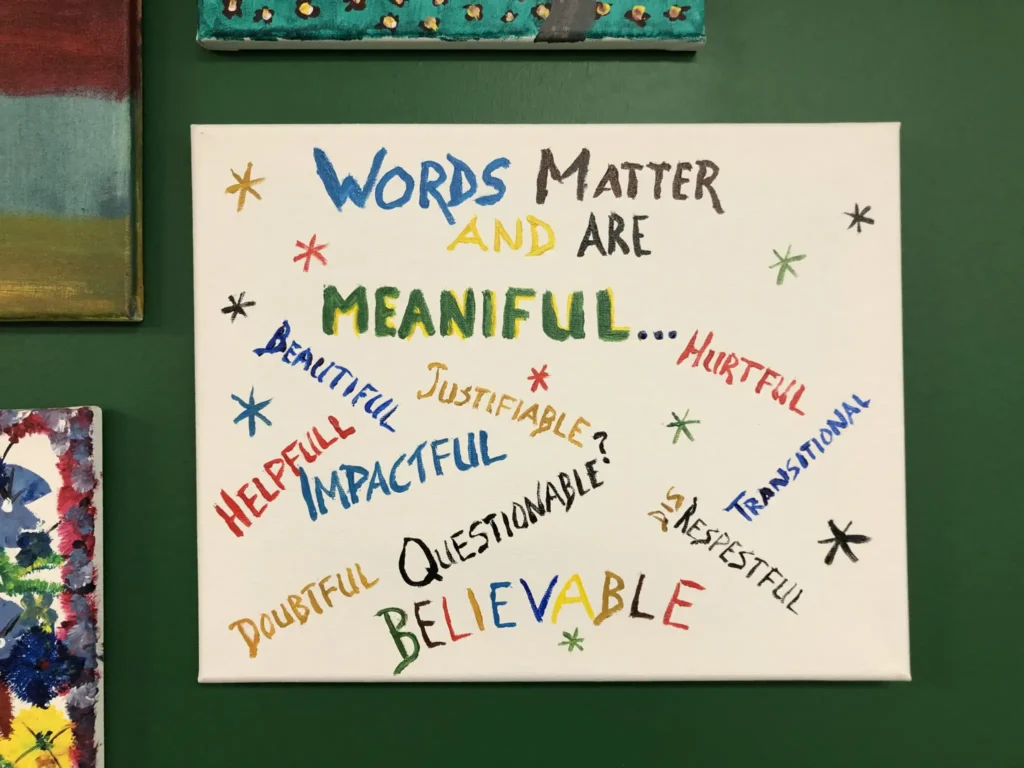 WORDS MATTER
AND ARE
MEANIFUL...
BEAUTIFUL
JUSTIFIABLE
HURTFUL
HELPFULL
IMPACTFUL
TRANSITIONAL
QUESTIONABLE?
DISRESPESTFUL
DOUBTFUL
BELIEVABLE